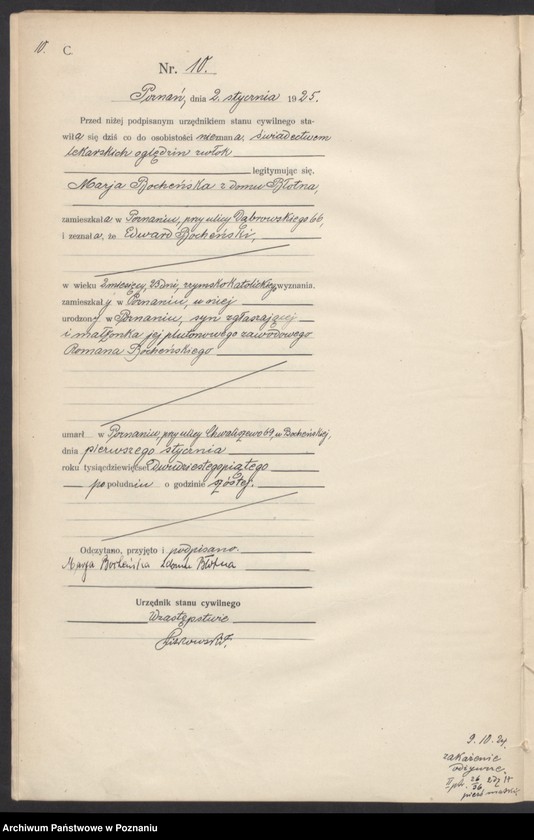 10.
C.
Nr. 10.
Poznań, dnia 2. stycznia 1925.
Przed niżej podpisanym urzędnikiem stanu cywilnego sta-
wiła się dziś co do osobistości nieznana, świadectwem
lekarskich oględzin zwłok
legitymując się.
Marja Bocheńska z domu Błotna,
zamieszkała w Poznaniu, przy ulicy Dąbrowskiego 66,
i zeznała, że Edward Bocheński,
w wieku 2 miesięcy, 23 dni, rzymsko katolickiego wyznania.
zamieszkały w Poznaniu, u niej
urodzony w Poznaniu, syn zgłaszającej
i małżonka jej plutonowego zawodowego
Romana Bocheńskiego
umarł w Poznaniu, przy ulicy Chwaliszewo 69, u Bocheńskiej,
dnia pierwszego stycznia
roku tysiącdziewięćset dwudziestegopiątego
po południu o godzinie szóstej.
Odczytano, przyjęto i podpisano.
Marja Bocheńska z domu Błotna
Urzędnik stanu cywilnego
W zastępstwie
9.10.24.
zakażenie
Archiwum Państwowe w Poznaniu